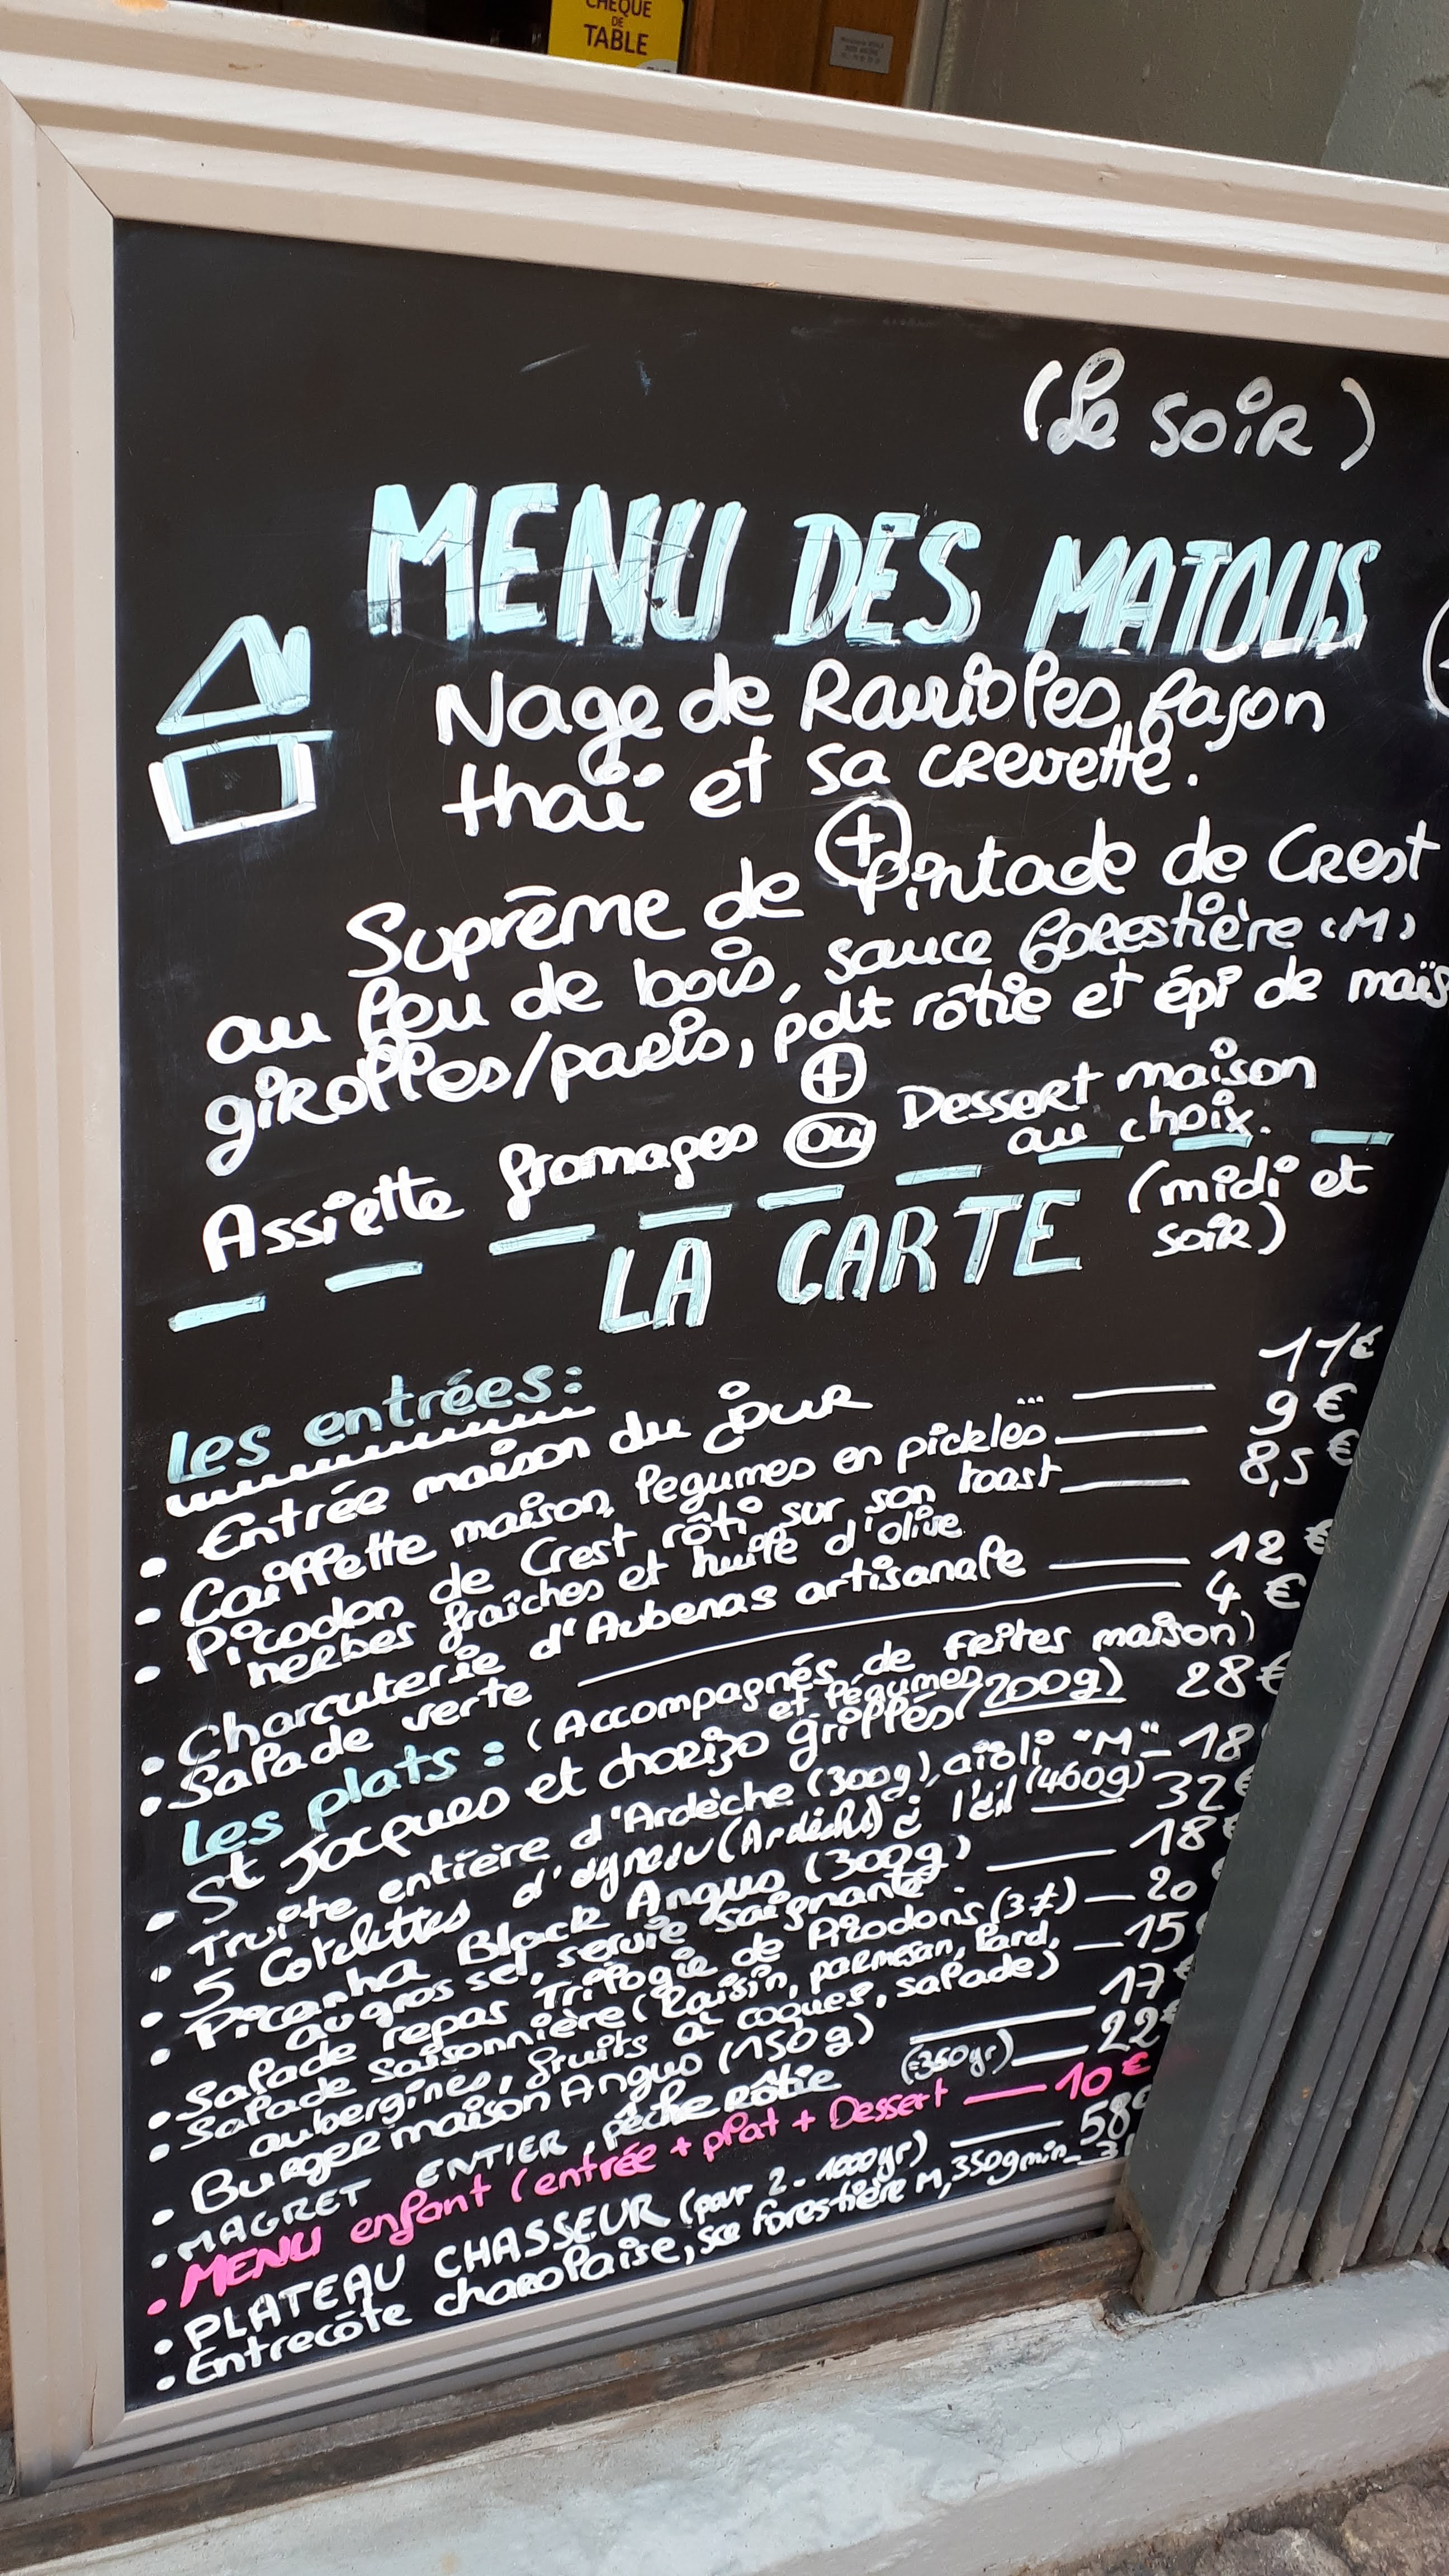 CHÈQUE
DE
TABLE
(Le soir)
MENU DES MATOUS
Nage de Ravioles façon
thaï et sa crevette.
+
Suprême de Pintade de Crest
au feu de bois, sauce forestière (M)
girolles/paris, pdt rôtie et épi de maïs
+
Assiette fromages ou Dessert maison
au choix.
LA CARTE (midi et
soir)
les entrées:
• Entrée maison du jour ... 11€
• Caillette maison, légumes en pickles 9€
• Picodon de Crest rôti sur son toast 8,5€
herbes fraîches et huile d'olive
• Charcuterie d'Aubenas artisanale 12€
• Salade verte 4€
les plats : (Accompagnés de frites maison)
et légumes
• St Jacques et chorizo grillés (200g) 28€
• Truite entière d'Ardèche (300g), aïoli "M" 18€
• 5 Cotelettes d'agneau (Ardèche) à l'œil (460g) 32€
• Picanha Black Angus (300g) 18€
au gros sel, servie saignante.
• Salade repas Trilogie de Picodons (3 ≠) 20
• Salade saisonnière (Raisin, parmesan, lard, 15€
aubergines, fruits à coques, salade)
• Burger maison Angus (150g) 17€
• MAGRET ENTIER, pêche Rôtie (=350gr) 22€
• MENU enfant (entrée + plat + Dessert 10€
• PLATEAU CHASSEUR (pour 2 - 1000gr) 58€
• Entrecôte charolaise, sce forestière M, 350g min